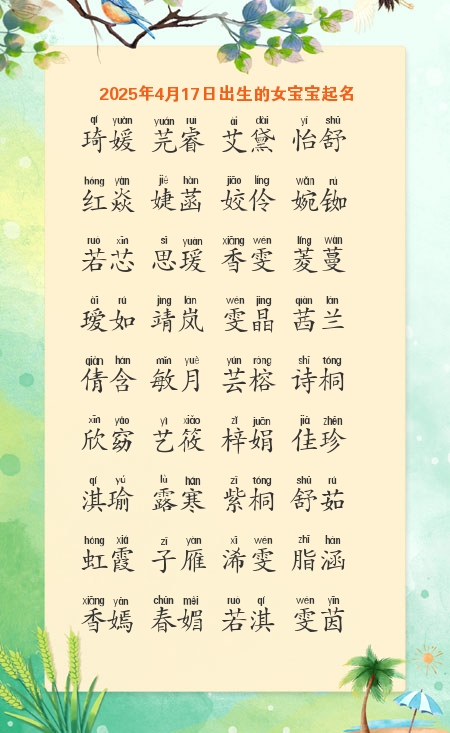 2025年4月17日出生的女宝宝起名
qí yuàn yuán ruì ài dài yí shū
琦媛 芫睿 艾黛 怡舒
hóng yàn jié hàn jiāo líng wǎn rú
红焱 婕菡 姣伶 婉铷
ruò xīn sī yuàn xiāng wén líng wàn
若芯 思瑗 香雯 菱蔓
ài rú jìng lán wén jīng qiàn lán
瑷如 靖岚 雯晶 茜兰
qiàn hán mǐn yuè yún róng shī tóng
倩含 敏月 芸榕 诗桐
xīn yǎo yì xiǎo zǐ juān jiā zhēn
欣窈 艺筱 梓娟 佳珍
qí yú lù hán zǐ tóng shū rú
淇瑜 露寒 紫桐 舒茹
hóng xiá zǐ yàn xī wén zhī hán
虹霞 子雁 浠雯 脂涵
xiāng yān chūn mèi ruò qí wén yīn
香嫣 春媚 若淇 雯茵